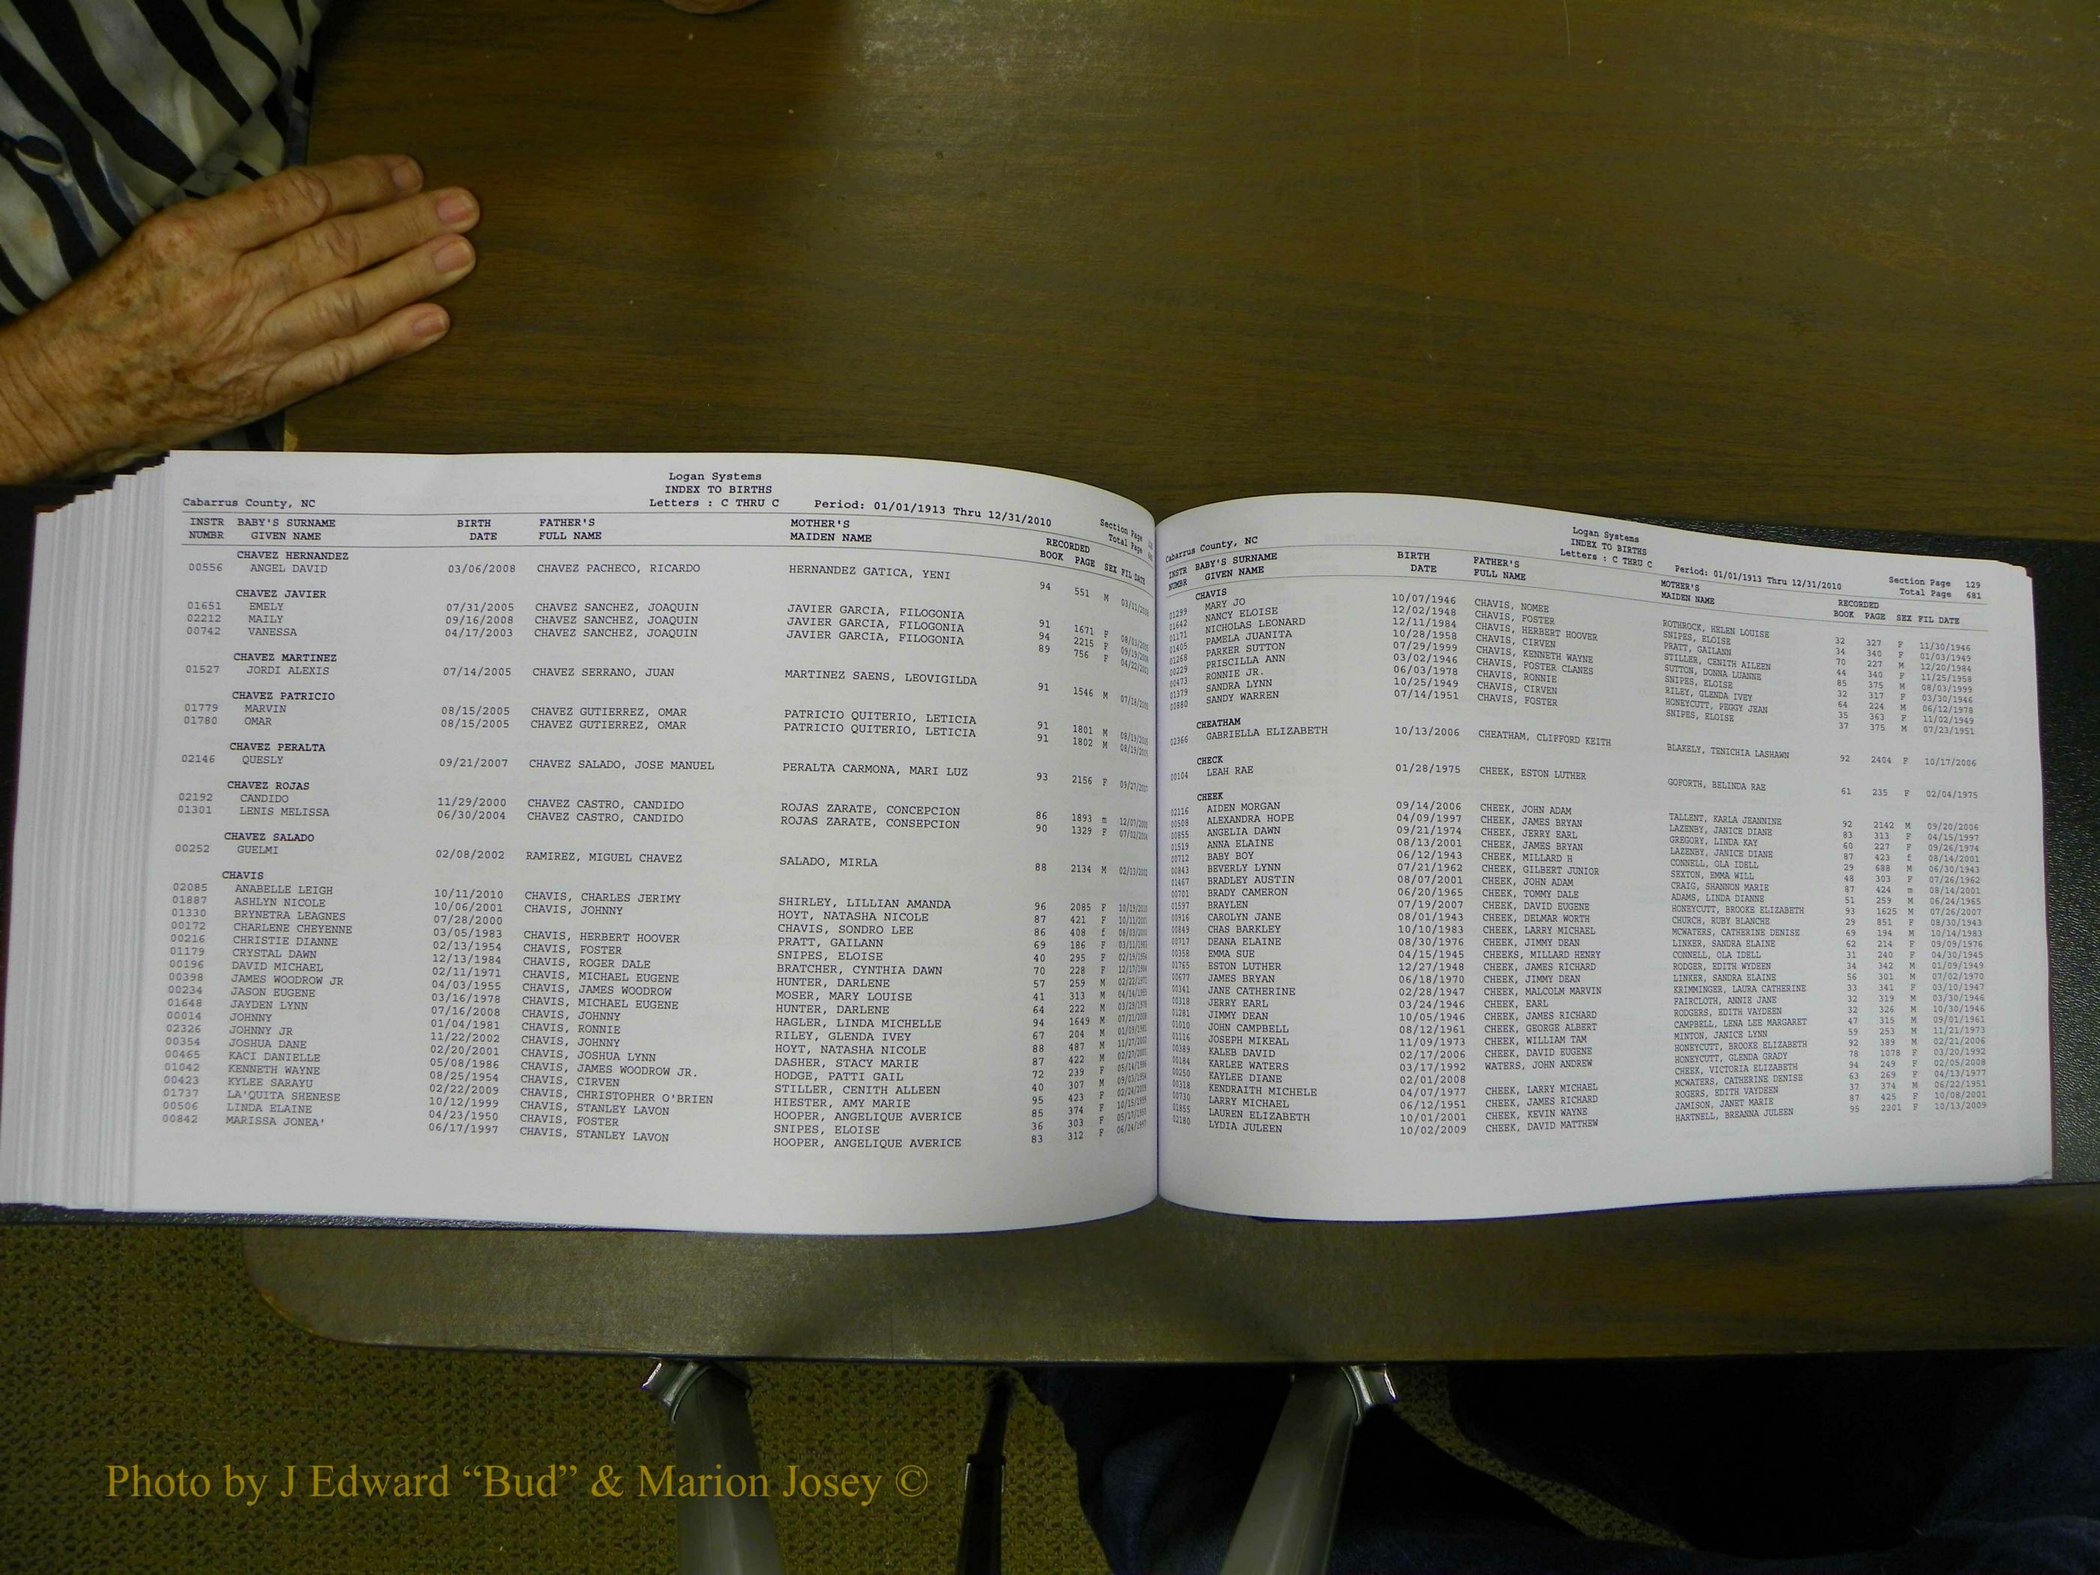 Logan Systems
INDEX TO BIRTHS
Cabarrus County, NC Letters : C THRU C Period: 01/01/1913 Thru 12/31/2010 Section Page
Total Page
INSTR BABY'S SURNAME BIRTH FATHER'S MOTHER'S RECORDED
NUMBR GIVEN NAME DATE FULL NAME MAIDEN NAME BOOK PAGE SEX FIL DATE
CHAVEZ HERNANDEZ
00556 ANGEL DAVID 03/06/2008 CHAVEZ PACHECO, RICARDO HERNANDEZ GATICA, YENI 94 551 M 03/11/2008
CHAVEZ JAVIER
01651 EMELY 07/31/2005 CHAVEZ SANCHEZ, JOAQUIN JAVIER GARCIA, FILOGONIA 91 1671 F 08/03/2005
02212 MAILY 09/16/2008 CHAVEZ SANCHEZ, JOAQUIN JAVIER GARCIA, FILOGONIA 94 2215 F 09/19/2008
00742 VANESSA 04/17/2003 CHAVEZ SANCHEZ, JOAQUIN JAVIER GARCIA, FILOGONIA 89 756 F 04/22/2003
CHAVEZ MARTINEZ
01527 JORDI ALEXIS 07/14/2005 CHAVEZ SERRANO, JUAN MARTINEZ SAENS, LEOVIGILDA 91 1546 M 07/18/2005
CHAVEZ PATRICIO
01779 MARVIN 08/15/2005 CHAVEZ GUTIERREZ, OMAR PATRICIO QUITERIO, LETICIA 91 1801 M 08/19/2005
01780 OMAR 08/15/2005 CHAVEZ GUTIERREZ, OMAR PATRICIO QUITERIO, LETICIA 91 1802 M 08/19/2005
CHAVEZ PERALTA
02146 QUESLY 09/21/2007 CHAVEZ SALADO, JOSE MANUEL PERALTA CARMONA, MARI LUZ 93 2156 F 09/27/2007
CHAVEZ ROJAS
02192 CANDIDO 11/29/2000 CHAVEZ CASTRO, CANDIDO ROJAS ZARATE, CONCEPCION 86 1893 m
01301 LENIS MELISSA 06/30/2004 CHAVEZ CASTRO, CANDIDO ROJAS ZARATE, CONSEPCION 90 1329 F
CHAVEZ SALADO
00252 GUELMI 02/08/2002 RAMIREZ, MIGUEL CHAVEZ SALADO, MIRLA 88 2134 M
CHAVIS
02085 ANABELLE LEIGH 10/11/2010 CHAVIS, CHARLES JERIMY SHIRLEY, LILLIAN AMANDA 96 2085 F
01887 ASHLYN NICOLE 10/06/2001 CHAVIS, JOHNNY HOYT, NATASHA NICOLE 87 421 F
01330 BRYNETRA LEAGNES 07/28/2000 CHAVIS, SONDRO LEE 86 408 f
00172 CHARLENE CHEYENNE 03/05/1983 CHAVIS, HERBERT HOOVER PRATT, GAILANN 69 186 F
00216 CHRISTIE DIANNE 02/13/1954 CHAVIS, FOSTER SNIPES, ELOISE 40 295 F
01179 CRYSTAL DAWN 12/13/1984 CHAVIS, ROGER DALE BRATCHER, CYNTHIA DAWN 70 228 F
00196 DAVID MICHAEL 02/11/1971 CHAVIS, MICHAEL EUGENE HUNTER, DARLENE 57 259 M
00398 JAMES WOODROW JR 04/03/1955 CHAVIS, JAMES WOODROW MOSER, MARY LOUISE 41 313 M
00234 JASON EUGENE 03/16/1978 CHAVIS, MICHAEL EUGENE HUNTER, DARLENE 64 222 M
01648 JAYDEN LYNN 07/16/2008 CHAVIS, JOHNNY HAGLER, LINDA MICHELLE 94 1649 M
00014 JOHNNY 01/04/1981 CHAVIS, RONNIE RILEY, GLENDA IVEY 67 204 M
02326 JOHNNY JR 11/22/2002 CHAVIS, JOHNNY HOYT, NATASHA NICOLE 88 487 M
00354 JOSHUA DANE 02/20/2001 CHAVIS, JOSHUA LYNN DASHER, STACY MARIE 87 422 M
00465 KACI DANIELLE 05/08/1986 CHAVIS, JAMES WOODROW JR. HODGE, PATTI GAIL 72 239 F
01042 KENNETH WAYNE 08/25/1954 CHAVIS, CIRVEN STILLER, CENITH ALLEEN 40 307 M
00423 KYLEE SARAYU 02/22/2009 CHAVIS, CHRISTOPHER O'BRIEN HIESTER, AMY MARIE 95 423 F
01737 LA'QUITA SHENESE 10/12/1999 CHAVIS, STANLEY LAVON HOOPER, ANGELIQUE AVERICE 85 374 F
00506 LINDA ELAINE 04/23/1950 CHAVIS, FOSTER SNIPES, ELOISE 36 303 F
00842 MARISSA JONEA' 06/17/1997 CHAVIS, STANLEY LAVON HOOPER, ANGELIQUE AVERICE 83 312 F 06/24/1997
Logan Systems
INDEX TO BIRTHS
Cabarrus County, NC Letters : C THRU C Period: 01/01/1913 Thru 12/31/2010 Section Page 129
Total Page 681
INSTR BABY'S SURNAME BIRTH FATHER'S MOTHER'S RECORDED
NUMBR GIVEN NAME DATE FULL NAME MAIDEN NAME BOOK PAGE SEX FIL DATE
CHAVIS
01299 MARY JO 10/07/1946 CHAVIS, NOMEE ROTHROCK, HELEN LOUISE 32 327 F 11/30/1946
01642 NANCY ELOISE 12/02/1948 CHAVIS, FOSTER SNIPES, ELOISE 34 340 F 01/03/1949
01171 NICHOLAS LEONARD 12/11/1984 CHAVIS, HERBERT HOOVER PRATT, GAILANN 70 227 M 12/20/1984
01405 PAMELA JUANITA 10/28/1958 CHAVIS, CIRVEN STILLER, CENITH AILEEN 44 340 F 11/25/1958
01268 PARKER SUTTON 07/29/1999 CHAVIS, KENNETH WAYNE SUTTON, DONNA LUANNE 85 375 M 08/03/1999
00229 PRISCILLA ANN 03/02/1946 CHAVIS, FOSTER CLANES SNIPES, ELOISE 32 317 F 03/30/1946
00473 RONNIE JR. 06/03/1978 CHAVIS, RONNIE RILEY, GLENDA IVEY 64 224 M 06/12/1978
01379 SANDRA LYNN 10/25/1949 CHAVIS, CIRVEN HONEYCUTT, PEGGY JEAN 35 363 F 11/02/1949
00880 SANDY WARREN 07/14/1951 CHAVIS, FOSTER SNIPES, ELOISE 37 375 M 07/23/1951
CHEATHAM
02366 GABRIELLA ELIZABETH 10/13/2006 CHEATHAM, CLIFFORD KEITH BLAKELY, TENICHIA LASHAWN 92 2404 F 10/17/2006
CHECK
00104 LEAH RAE 01/28/1975 CHEEK, ESTON LUTHER GOFORTH, BELINDA RAE 61 235 F 02/04/1975
CHEEK
02116 AIDEN MORGAN 09/14/2006 CHEEK, JOHN ADAM TALLENT, KARLA JEANNINE 92 2142 M 09/20/2006
00508 ALEXANDRA HOPE 04/09/1997 CHEEK, JAMES BRYAN LAZENBY, JANICE DIANE 83 313 F 04/15/1997
00855 ANGELIA DAWN 09/21/1974 CHEEK, JERRY EARL GREGORY, LINDA KAY 60 227 F 09/26/1974
01519 ANNA ELAINE 08/13/2001 CHEEK, JAMES BRYAN LAZENBY, JANICE DIANE 87 423 f 08/14/2001
00712 BABY BOY 06/12/1943 CHEEK, MILLARD H CONNELL, OLA IDELL 29 688 M 06/30/1943
00843 BEVERLY LYNN 07/21/1962 CHEEK, GILBERT JUNIOR SEXTON, EMMA WILL 48 303 F 07/26/1962
01467 BRADLEY AUSTIN 08/07/2001 CHEEK, JOHN ADAM CRAIG, SHANNON MARIE 87 424 m 08/14/2001
00701 BRADY CAMERON 06/20/1965 CHEEK, TOMMY DALE ADAMS, LINDA DIANNE 51 259 M 06/24/1965
01597 BRAYLEN 07/19/2007 CHEEK, DAVID EUGENE HONEYCUTT, BROOKE ELIZABETH 93 1625 M 07/26/2007
00916 CAROLYN JANE 08/01/1943 CHEEK, DELMAR WORTH CHURCH, RUBY BLANCHE 29 851 F 08/30/1943
00849 CHAS BARKLEY 10/10/1983 CHEEK, LARRY MICHAEL MCWATERS, CATHERINE DENISE 69 194 M 10/14/1983
00717 DEANA ELAINE 08/30/1976 CHEEK, JIMMY DEAN LINKER, SANDRA ELAINE 62 214 F 09/09/1976
00358 EMMA SUE 04/15/1945 CHEEKS, MILLARD HENRY CONNELL, OLA IDELL 31 240 F 04/30/1945
01765 ESTON LUTHER 12/27/1948 CHEEK, JAMES RICHARD RODGER, EDITH WYDEEN 34 342 M 01/09/1949
00677 JAMES BRYAN 06/18/1970 CHEEK, JIMMY DEAN LINKER, SANDRA ELAINE 56 301 M 07/02/1970
00341 JANE CATHERINE 02/28/1947 CHEEK, MALCOLM MARVIN KRIMMINGER, LAURA CATHERINE 33 341 F 03/10/1947
00318 JERRY EARL 03/24/1946 CHEEK, EARL FAIRCLOTH, ANNIE JANE 32 319 M 03/30/1946
01281 JIMMY DEAN 10/05/1946 CHEEK, JAMES RICHARD RODGERS, EDITH VAYDEEN 32 326 M 10/30/1946
01010 JOHN CAMPBELL 08/12/1961 CHEEK, GEORGE ALBERT CAMPBELL, LENA LEE MARGARET 47 315 M 09/01/1961
01116 JOSEPH MIKEAL 11/09/1973 CHEEK, WILLIAM TAM MINTON, JANICE LYNN 59 253 M 11/21/1973
00389 KALEB DAVID 02/17/2006 CHEEK, DAVID EUGENE HONEYCUTT, BROOKE ELIZABETH 92 389 M 02/21/2006
00184 KARLEE WATERS 03/17/1992 WATERS, JOHN ANDREW HONEYCUTT, GLENDA GRADY 78 1078 F 03/20/1992
00250 KAYLEE DIANE 02/01/2008 CHEEK, VICTORIA ELIZABETH 94 249 F 02/05/2008
00318 KENDRAITH MICHELE 04/07/1977 CHEEK, LARRY MICHAEL MCWATERS, CATHERINE DENISE 63 269 F 04/13/1977
00730 LARRY MICHAEL 06/12/1951 CHEEK, JAMES RICHARD ROGERS, EDITH VAYDEEN 37 374 M 06/22/1951
01855 LAUREN ELIZABETH 10/01/2001 CHEEK, KEVIN WAYNE JAMISON, JANET MARIE 87 425 F 10/08/2001
02180 LYDIA JULEEN 10/02/2009 CHEEK, DAVID MATTHEW HARTNELL, BREANNA JULEEN 95 2201 F 10/13/2009
Photo by J Edward “Bud” & Marion Josey ©